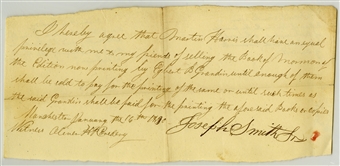 I hereby agree that Martin Harris shall have an equal
privilege with me & my friends of selling the Book of Mormon of
the Edition now printing by Egbert B Grandin until enough of them
shall be sold to pay for the printing of the same or until such times as
the said Grandin shall be paid for the printing the aforesaid Books or copies
Manchester January the 16th
Witness
Joseph Smith Jr